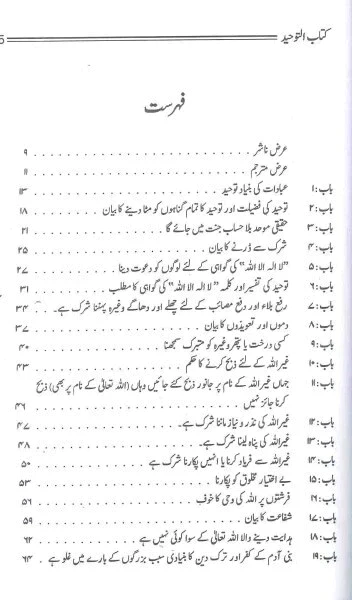 کتاب التوحید 5
فہرست
عرض ناشر ۹
عرض مترجم ۱۱
باب: ۱ عبادات کی بنیاد توحید ۱۳
باب: ۲ توحید کی فضیلت اور توحید کا تمام گناہوں کو مٹا دینے کا بیان ۱۸
باب: ۳ حقیقی موحد بلا حساب جنت میں جائے گا ۲۱
باب: ۴ شرک سے ڈرنے کا بیان ۲۵
باب: ۵ "لا الہ الا اللہ" کی گواہی کے لئے لوگوں کو دعوت دینا ۲۷
باب: ۶ توحید کی تفسیر اور کلمہ "لا الہ الا اللہ" کی گواہی کا مطلب ۳۱
باب: ۷ رفع بلاء اور دفع مصائب کے لئے چھلے اور دھاگے وغیرہ پہننا شرک ہے۔ ۳۴
باب: ۸ دموں اور تعویذوں کا بیان ۳۷
باب: ۹ کسی درخت یا پتھر وغیرہ کو متبرک سمجھنا ۴۰
باب: ۱۰ غیر اللہ کے لئے ذبح کرنے کا حکم ۴۳
باب: ۱۱ جہاں غیر اللہ کے نام پر جانور ذبح کئے جائیں وہاں (اللہ تعالی کے نام پر بھی) ذبح
کرنا جائز نہیں ۴۶
باب: ۱۲ غیر اللہ کی نذر و نیاز ماننا شرک ہے۔ ۴۷
باب: ۱۳ غیر اللہ کی پناہ لینا شرک ہے۔ ۴۸
باب: ۱۴ غیر اللہ سے فریاد کرنا یا انہیں پکارنا شرک ہے ۵۰
باب: ۱۵ بے اختیار مخلوق کو پکارنا ۵۳
باب: ۱۶ فرشتوں پر اللہ کی وحی کا خوف ۵۶
باب: ۱۷ شفاعت کا بیان ۵۹
باب: ۱۸ ہدایت دینے والا اللہ تعالی کے سوا کوئی نہیں ہے ۶۲
باب: ۱۹ بنی آدم کے کفر اور ترک دین کا بنیادی سبب بزرگوں کے بارے میں غلو ہے ۶۴